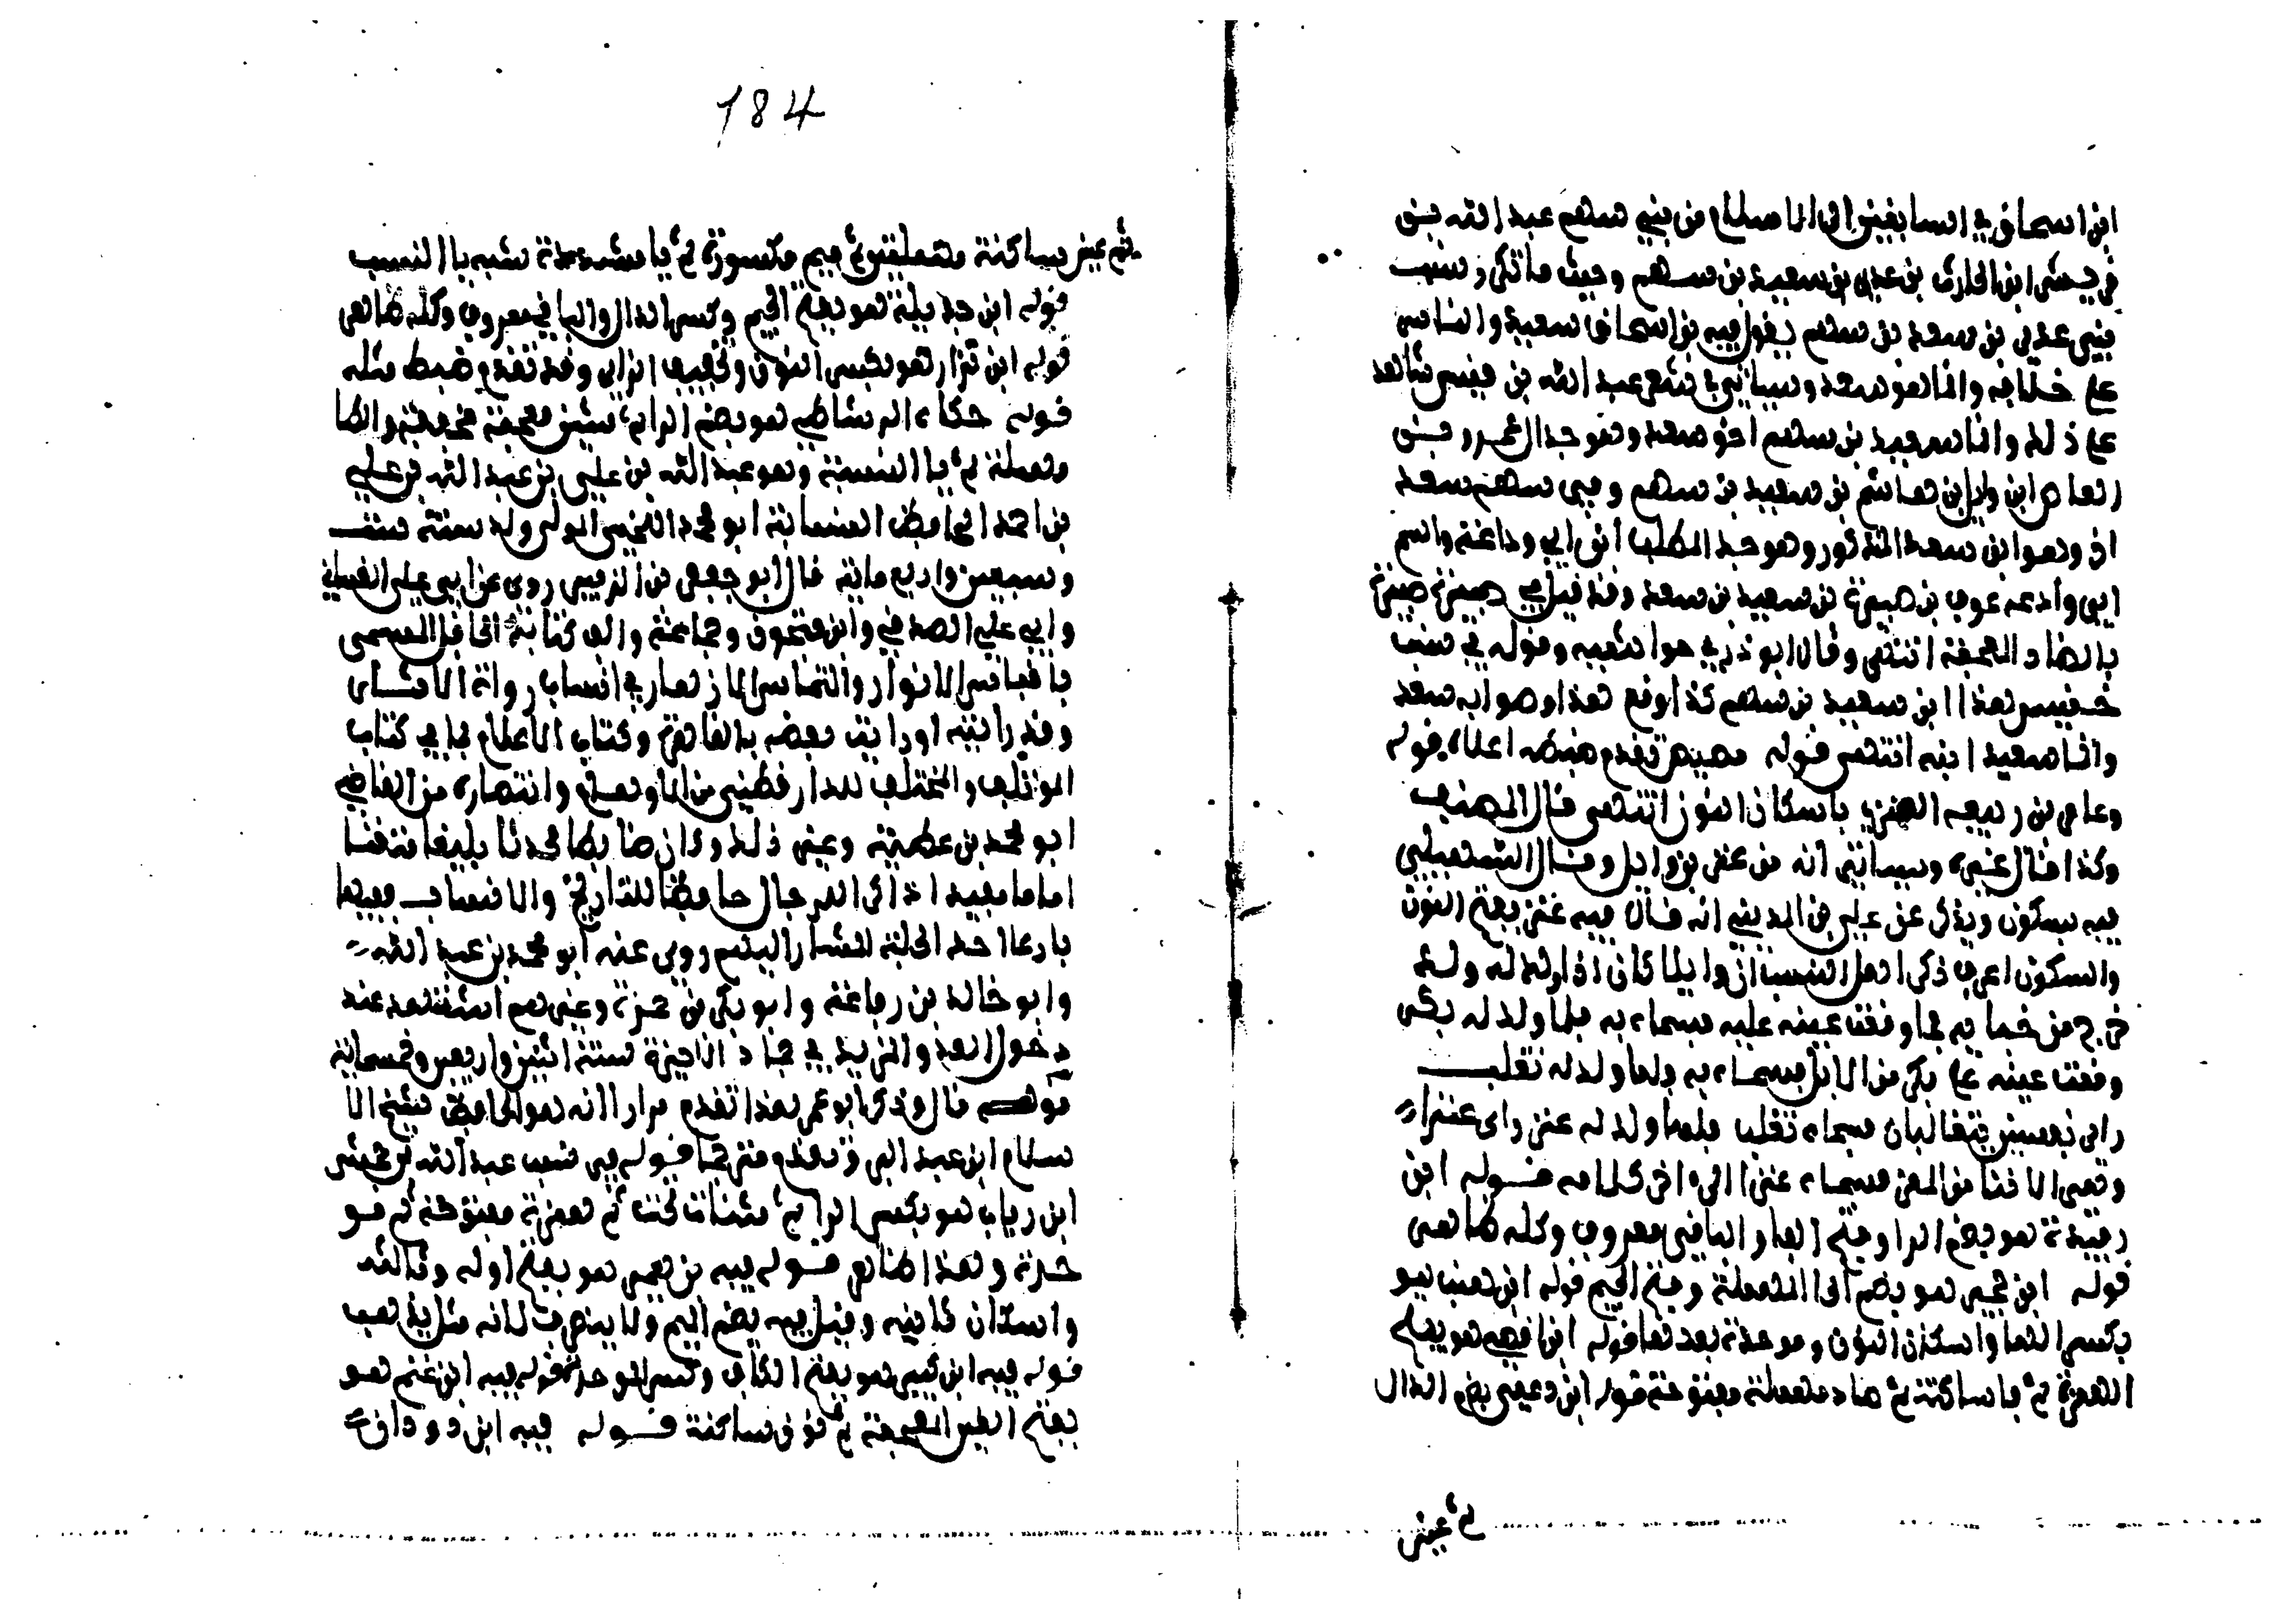 ابن اسحاق في السابقين الى الاسلام من بني سهم عبد الله بن
قيس ابن الحارث بن عدي بن سعيد بن سهم وحيث ما تكرر نسب
بني عدي بن سعد بن سهم يقول فيه بن اسحاق سعيد والناس
على خلافه وانما هو سعد وسياتي في شعر عبد الله بن قيس شاهد
على ذلك وانما سعيد بن سهم اخو سعد وهو جد ال عمرو بن
العاص ابن وايل بن هاشم بن سعيد بن سهم وفي سهم سعد
اخر وهو ابن سعد المذكور وهو جد المطلب ابن ابي وداعة واسم
ابي وداعه عوف بن صبيرة بن سعيد بن سعد وقد قيل في صبيرة ضبيرة
بالضاد المعجمة انتهى وقال ابو ذر في حواشيه وقوله في نسب
خنيس هذا ابن سعيد بن سهم كذا وقع هذا وصوابه سعد
وانما سعيد ابنه انتهى قوله تقدم ضبطه اعلاه قوله
وعامر بن ربيعه العنزي باسكان النون انتهى قال المصنف
وكذا قال غيره وسياتي انه من عنز بن وايل وقال السهيلي
فيه بسكون ويذكر عن علي بن المديني انه قال فيه عنز بفتح النون
والسكون اعرف ذكر اهل النسب ان وايلا كان اذا ولد له ولد
خرج من خبايه فما وقعت عينه عليه سماه به فلما ولد له بكر
وقعت عينه على بكر من الابل فسماه به ولما ولد له تغلب
راى نفسين يتغالبان فسماه تغلب فلما ولد له عنز راى عنزا
وهي الانثا من المعز فسماه عنزا الى اخر كلامه قوله ابن
رفيدة هو بضم الرا وفتح الفا والباقي معروف وكله ظاهر
قوله ابن حجير هو بضم الحا المهملة وفتح الجيم قوله ابن هنب هو
بكسر الها واسكان النون وموحدة بعدها قوله ابن افصى هو بفتح
الهمزة ثم فا ساكنة ثم صاد مهملة مفتوحة قوله ابن دعمي بضم الدال
ثم عين
184
ثم عين ساكنة مهملتين ثم ميم مكسورة ثم يا مشددة تشبه يا النسب
قوله ابن جديلة هو بفتح الجيم وكسر الدال والباقي معروف وكله ظاهر
قوله ابن نزار هو بكسر النون وتخفيف الزاي وقد تقدم ضبط مثله
قوله حكاه الرشاطي هو بضم الرا ثم شين معجمة مخففة والطا
مهملة ثم يا النسبة وهو عبد الله بن علي بن عبد الله بن علي
بن احمد الحافظ النسابة ابو محمد اللخمي ولد سنة ست
وستين واربع ماية قال ابو جعفر بن الزبير روى عن ابي علي الغساني
وابي علي الصدفي وابن فتحون وجماعة والف كتابه الحافل المسمى
باقتباس الانوار والتماس الازهار في انساب رواة الاثار
وقد رايته او رايت بعضه بالقاهرة وكتاب الاعلام بما في كتاب
الموتلف والمختلف للدارقطني من الاوهام وانتصاره من القاضي
ابو محمد بن عطية وغير ذلك وكان ضابطا محدثا بليغا متقنا
اماما مفيدا ذاكرا للرجال حافظا للتاريخ والانساب فقيها
بارعا احد الجلة المشار اليهم روى عنه ابو محمد بن عبد الله
وابو خالد بن رفاعة وابو بكر بن حمزة وغيرهم استشهد عند
دخول العدو المرية في جماد الاخيرة سنة اثنين واربعين وخمسماية
قوله قال وذكر ابو عمر هذا تقدم مرارا انه هو الحافظ شيخ الا
سلام ابن عبد البر وتقدم مترجما قوله في نسب عبد الله بن جحش
ابن رياب هو بكسر الرا ثم مثناة تحت ثم همزة مفتوحة ثم مو
حدة وهذا ظاهر قوله فيه بن يعمر هو بفتح اوله وثالثه
واسكان ثانيه وقيل فيه بضم الميم ولا ينصرف لانه مثل يذهب
قوله فيه ابن كبير هو بفتح الكاف وكسر الموحدة قوله فيه ابن غنم هو
بفتح الغين المعجمة ثم نون ساكنة قوله فيه ابن دودان